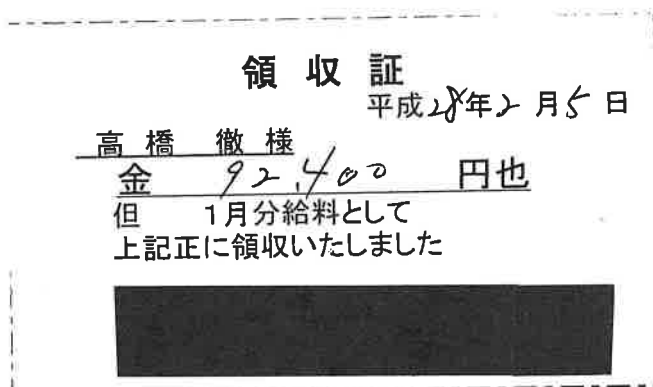 領収証
平成28年2月5日
高橋 徹様
金 92,400 円也
但 1月分給料として
上記正に領収いたしました